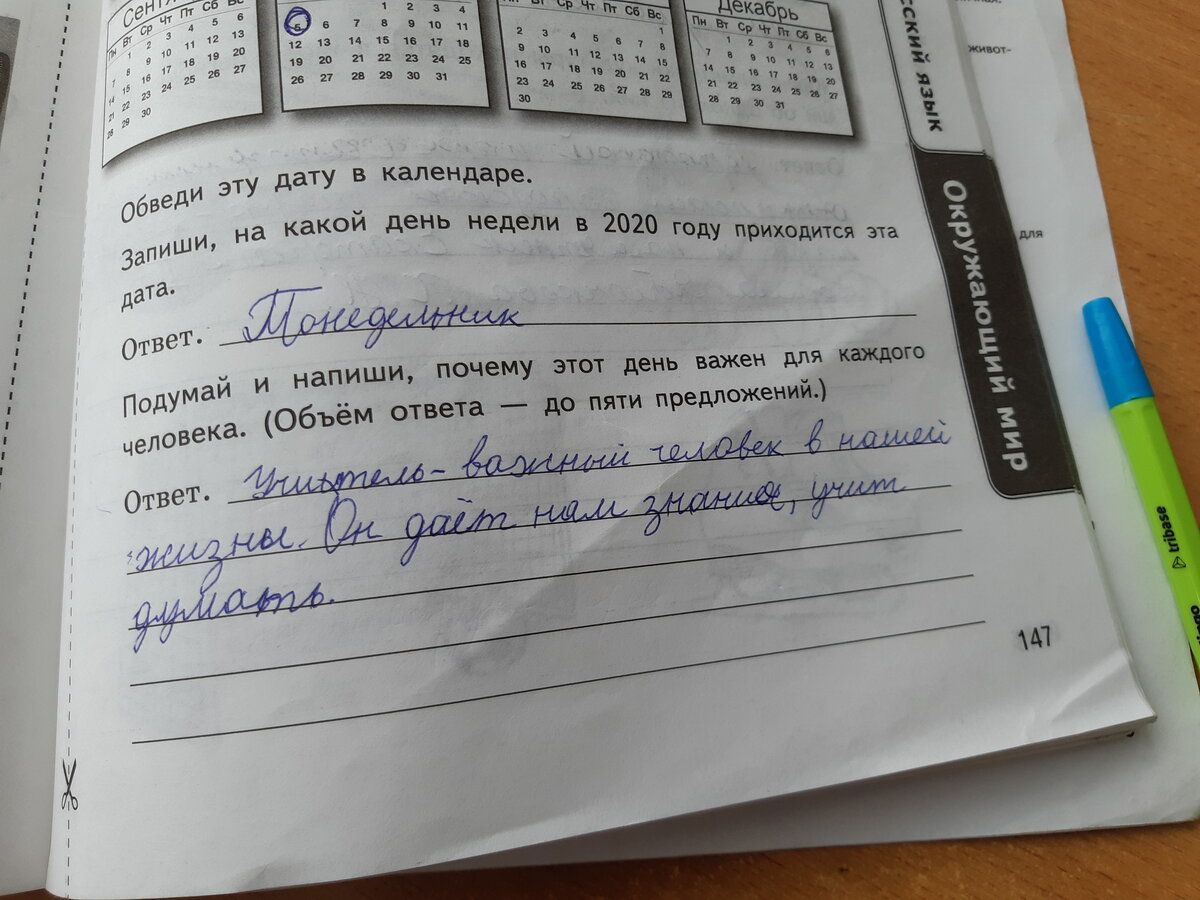 Декабрь
Пн Вт Ср Чт Пт Сб Вс
Пн Вт Ср Чт Пт Сб Вс
1 2 3 4 5 6
7 8 9 10 11 12 13
14 15 16 17 18 19 20
21 22 23 24 25 26 27
28 29 30
1 2 3 4
5 6 7 8 9 10 11
12 13 14 15 16 17 18
19 20 21 22 23 24 25
26 27 28 29 30 31
Вт Ср Чт Пт Сб Вс
1
2 3 4 5 6 7 8
9 10 11 12 13 14 15
16 17 18 19 20 21 22
23 24 25 26 27 28 29
30
1 2 3 4 5 6
7 8 9 10 11 12 13
14 15 16 17 18 19 20
21 22 23 24 25 26 27
28 29 30 31
Обведи эту дату в календаре.
Запиши, на какой день недели в 2020 году приходится эта
дата.
Ответ. Понедельник
Подумай и напиши, почему этот день важен для каждого
человека. (Объём ответа — до пяти предложений.)
Ответ. Учитель - важный человек в нашей
жизны. Он даёт нам знания, учит
думать.
147
сский язык
Окружающий мир
живот-
для
tribase